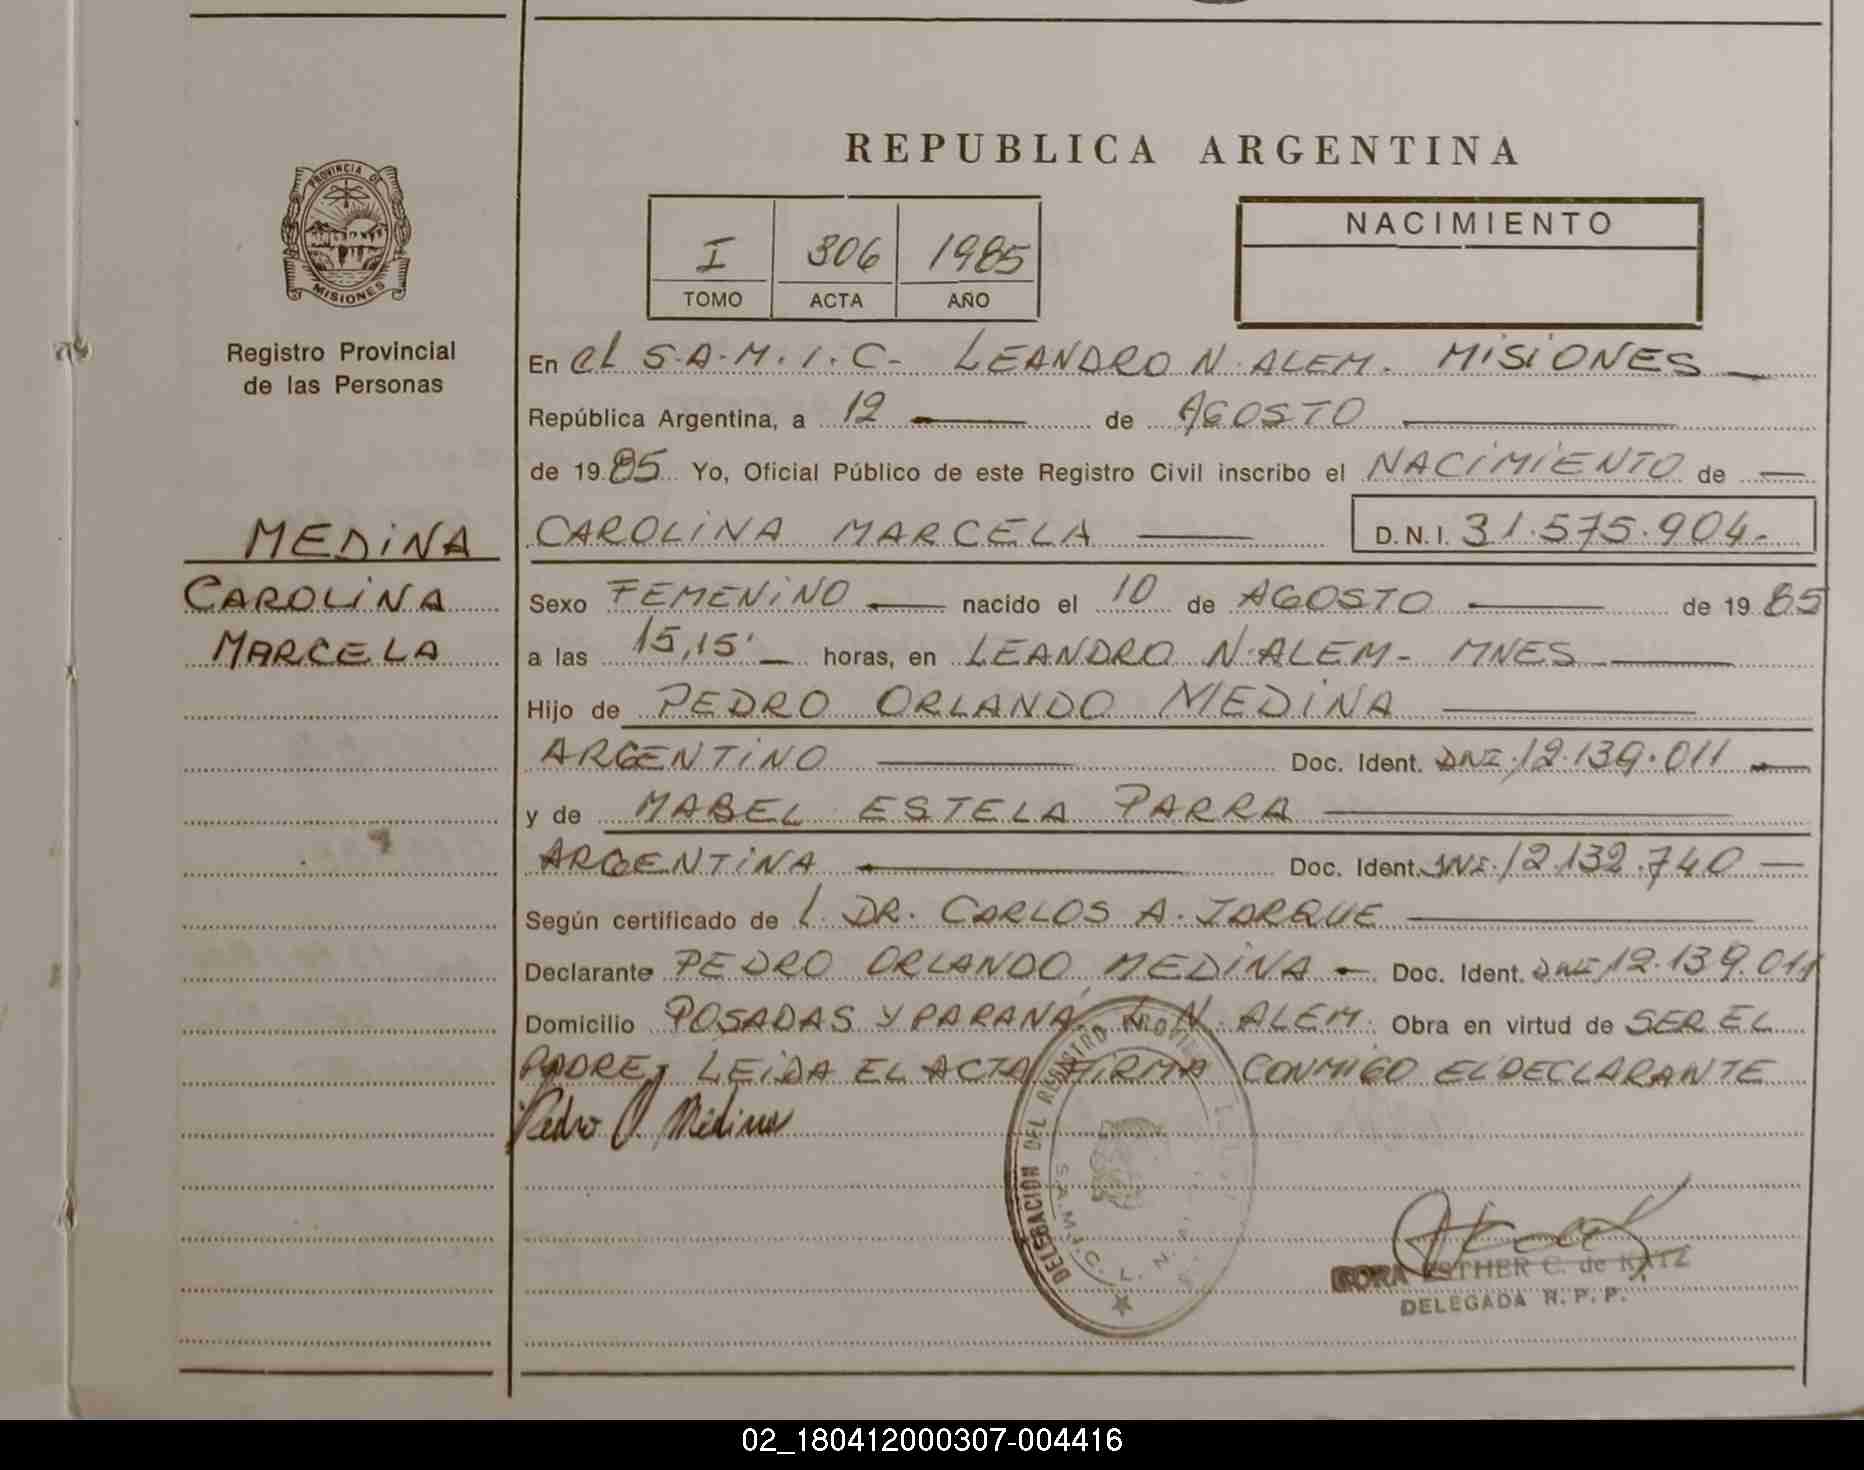 REPUBLICA ARGENTINA
PROVINCIA DE
MISIONES
Registro Provincial
de las Personas
I 306 1985
TOMO ACTA AÑO
NACIMIENTO
En el S.A.M.I.C- LEANDRO N. ALEM. MISIONES
República Argentina, a 12 de AGOSTO
de 1985 Yo, Oficial Público de este Registro Civil inscribo el NACIMIENTO de
MEDINA
CAROLINA
MARCELA
CAROLINA MARCELA D.N.I. 31.575.904-
Sexo FEMENINO nacido el 10 de AGOSTO de 1985
a las 15,15' horas, en LEANDRO N. ALEM- MNES
Hijo de PEDRO ORLANDO MEDINA
ARGENTINO Doc. Ident. DNI. 12.139.011
y de MABEL ESTELA PARRA
ARGENTINA Doc. Ident. DNI. 12.132.740
Según certificado de L. DR. CARLOS A. JARQUE
Declarante PEDRO ORLANDO MEDINA Doc. Ident. DNI 12.139.011
Domicilio POSADAS Y PARANA, L.N. ALEM. Obra en virtud de SER EL
PADRE, LEIDA EL ACTA FIRMA CONMIGO EL DECLARANTE
Pedro O. Medina
DELEGACION DEL REGISTRO
S.A.M.I.C. L. N.
ESTHER C. de KATZ
DELEGADA R.P.P.
02_180412000307-004416